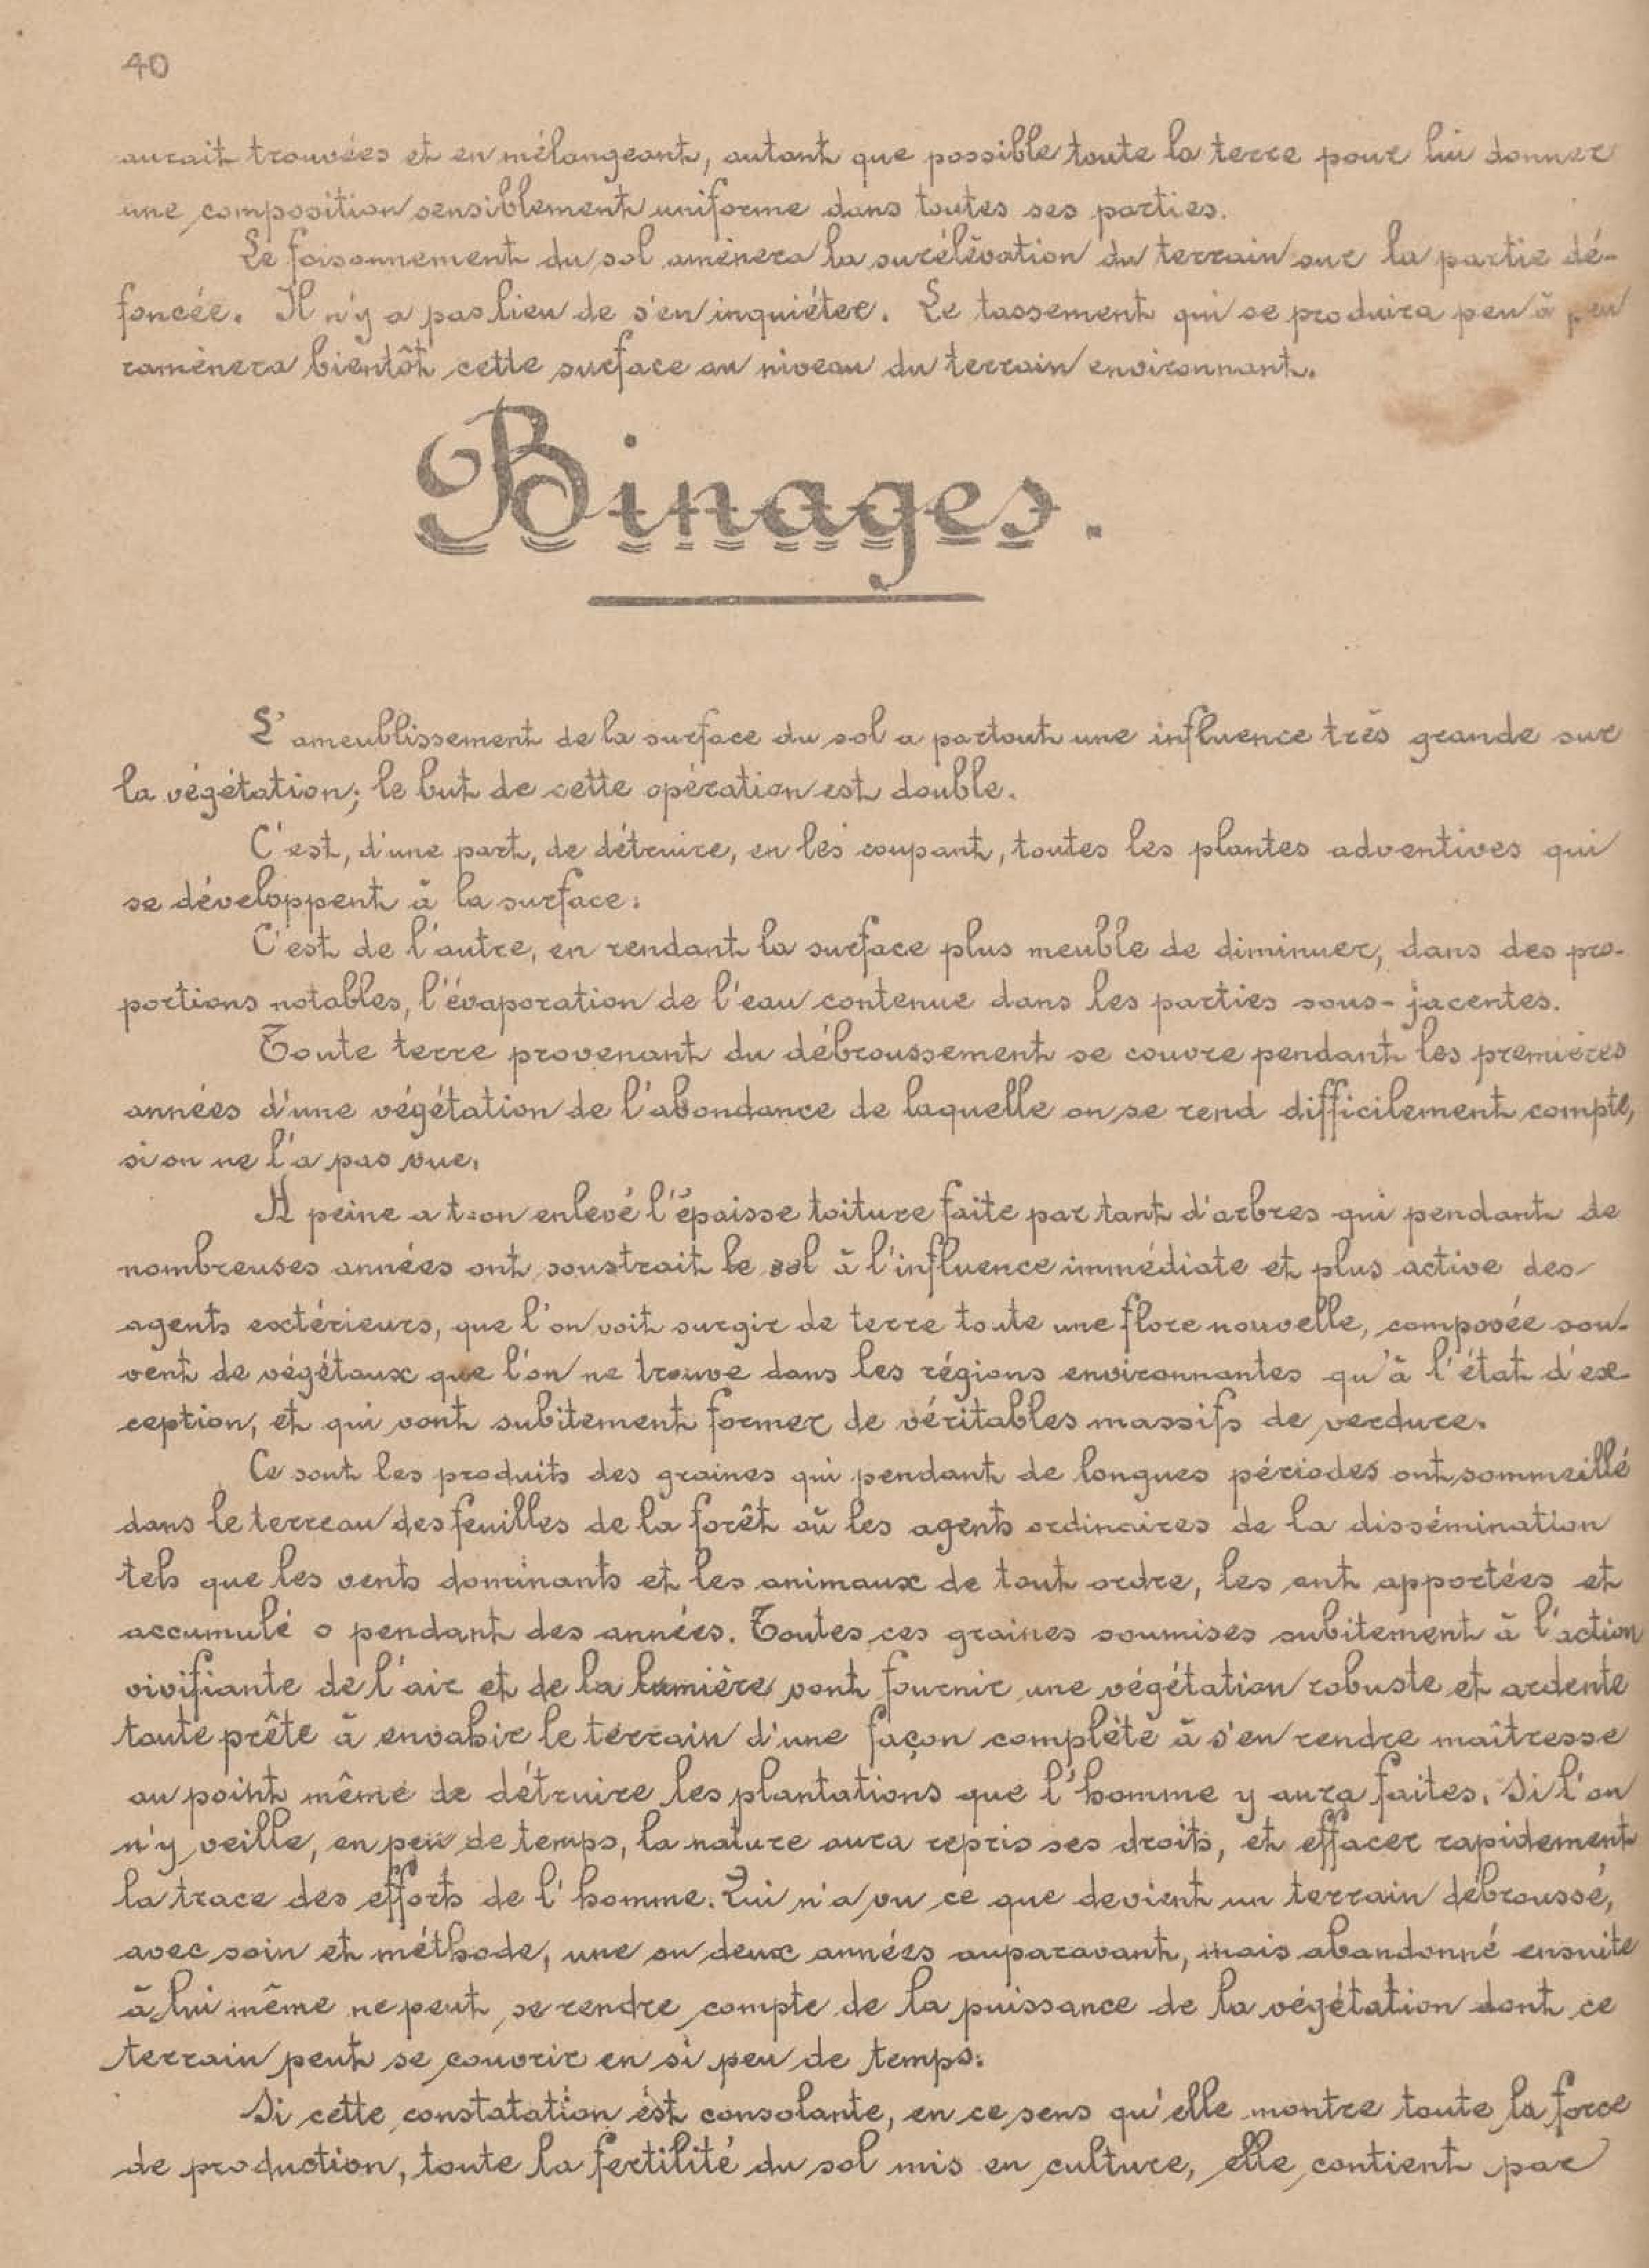 40
aurait trouvées et en mélangeant, autant que possible toute la terre pour lui donner
une composition sensiblement uniforme dans toutes ses parties.
Le foisonnement du sol amènera la surélévation du terrain sur la partie dé-
foncée. Il n'y a pas lieu de s'en inquiéter. Le tassement qui se produira peu à peu
ramènera bientôt cette surface au niveau du terrain environnant.
Binages.
L'ameublissement de la surface du sol a partout une influence très grande sur
la végétation; le but de cette opération est double.
C'est, d'une part, de détruire, en les coupant, toutes les plantes adventives qui
se développent à la surface:
C'est de l'autre, en rendant la surface plus meuble de diminuer, dans des pro-
portions notables, l'évaporation de l'eau contenue dans les parties sous-jacentes.
Toute terre provenant du débroussement se couvre pendant les premières
années d'une végétation de l'abondance de laquelle on se rend difficilement compte,
si on ne l'a pas vue.
A peine a t-on enlevé l'épaisse toiture faite par tant d'arbres qui pendant de
nombreuses années ont soustrait le sol à l'influence immédiate et plus active des
agents extérieurs, que l'on voit surgir de terre toute une flore nouvelle, composée sou-
vent de végétaux que l'on ne trouve dans les régions environnantes qu'à l'état d'ex-
ception, et qui vont subitement former de véritables massifs de verdure.
Ce sont les produits des graines qui pendant de longues périodes ont sommeillé
dans le terreau des feuilles de la forêt où les agents ordinaires de la dissémination
tels que les vents dominants et les animaux de tout ordre, les ont apportées et
accumulé s pendant des années. Toutes ces graines soumises subitement à l'action
vivifiante de l'air et de la lumière vont fournir une végétation robuste et ardente
toute prête à envahir le terrain d'une façon complète à s'en rendre maîtresse
au point même de détruire les plantations que l'homme y aura faites. Si l'on
n'y veille, en peu de temps, la nature aura repris ses droits, et effacer rapidement
la trace des efforts de l'homme. Qui n'a vu ce que devient un terrain débroussé,
avec soin et méthode, une ou deux années auparavant, mais abandonné ensuite
à lui même ne peut se rendre compte de la puissance de la végétation dont ce
terrain peut se couvrir en si peu de temps.
Si cette constatation est consolante, en ce sens qu'elle montre toute la force
de production, toute la fertilité du sol mis en culture, elle contient par